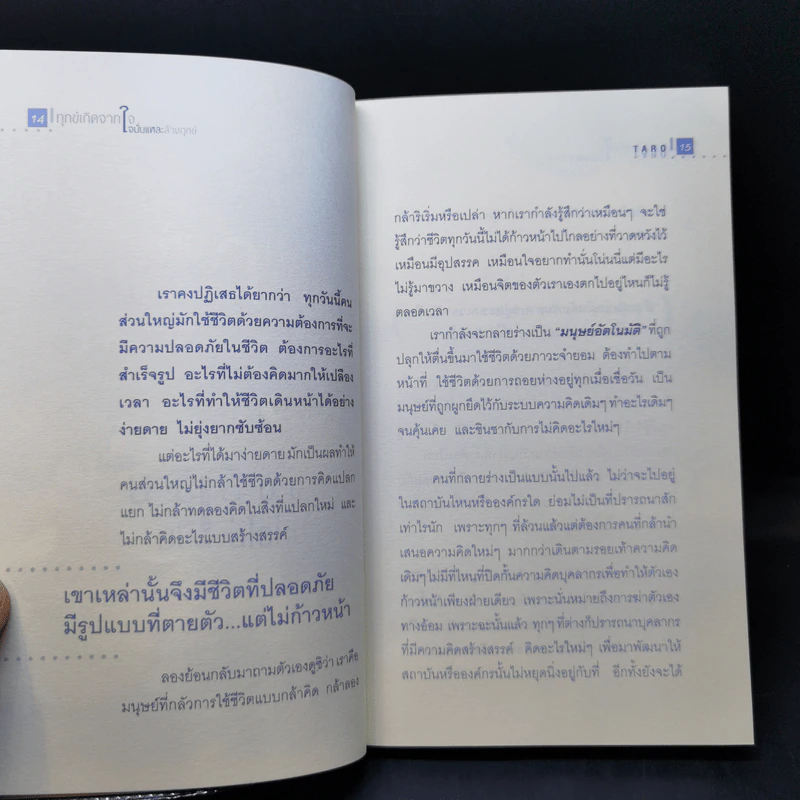 14 ทุกข์เกิดจากใจ
ใจนั่นแหละล้างทุกข์
เราคงปฏิเสธได้ยากว่า ทุกวันนี้คน
ส่วนใหญ่มักใช้ชีวิตด้วยความต้องการที่จะ
มีความปลอดภัยในชีวิต ต้องการอะไรที่
สำเร็จรูป อะไรที่ไม่ต้องคิดมากให้เปลือง
เวลา อะไรที่ทำให้ชีวิตเดินหน้าได้อย่าง
ง่ายดาย ไม่ยุ่งยากซับซ้อน
แต่อะไรที่ได้มาง่ายดาย มักเป็นผลทำให้
คนส่วนใหญ่ไม่กล้าใช้ชีวิตด้วยการคิดแปลก
แยก ไม่กล้าทดลองคิดในสิ่งที่แปลกใหม่ และ
ไม่กล้าคิดอะไรแบบสร้างสรรค์
เขาเหล่านั้นจึงมีชีวิตที่ปลอดภัย
มีรูปแบบที่ตายตัว...แต่ไม่ก้าวหน้า
ลองย้อนกลับมาถามตัวเองดูซิว่า เราคือ
มนุษย์ที่กลัวการใช้ชีวิตแบบกล้าคิด กล้าลอง
TARO 15
กล้าริเริ่มหรือเปล่า หากเรากำลังรู้สึกว่าเหมือนๆ จะใช่
รู้สึกว่าชีวิตทุกวันนี้ไม่ได้ก้าวหน้าไปไกลอย่างที่วาดหวังไว้
เหมือนมีอุปสรรค เหมือนใจอยากทำนั่นโน่นนี่แต่มีอะไร
ไม่รู้มาขวาง เหมือนจิตของตัวเราเองตกไปอยู่ไหนก็ไม่รู้
ตลอดเวลา
เรากำลังจะกลายร่างเป็น "มนุษย์อัตโนมัติ" ที่ถูก
ปลุกให้ตื่นขึ้นมาใช้ชีวิตด้วยภาวะจำยอม ต้องทำไปตาม
หน้าที่ ใช้ชีวิตด้วยการถอยห่างอยู่ทุกเมื่อเชื่อวัน เป็น
มนุษย์ที่ถูกผูกยึดไว้กับระบบความคิดเดิมๆ ทำอะไรเดิมๆ
จนคุ้นเคย และชินชากับการไม่คิดอะไรใหม่ๆ
คนที่กลายร่างเป็นแบบนั้นไปแล้ว ไม่ว่าจะไปอยู่
ในสถาบันไหนหรือองค์กรใด ย่อมไม่เป็นที่ปรารถนาสัก
เท่าไรนัก เพราะทุกๆ ที่ล้วนแล้วแต่ต้องการคนที่กล้านำ
เสนอความคิดใหม่ๆ มากกว่าเดินตามรอยเท้าความคิด
เดิมๆ ไม่มีที่ไหนที่ปิดกั้นความคิดบุคลากรเพื่อทำให้ตัวเอง
ก้าวหน้าเพียงฝ่ายเดียว เพราะนั่นหมายถึงการฆ่าตัวเอง
ทางอ้อม เพราะฉะนั้นแล้ว ทุกๆ ที่ต่างก็ปรารถนาบุคลากร
ที่มีความคิดสร้างสรรค์ คิดอะไรใหม่ๆ เพื่อมาพัฒนาให้
สถาบันหรือองค์กรนั้นไม่หยุดนิ่งอยู่กับที่ อีกทั้งยังจะได้